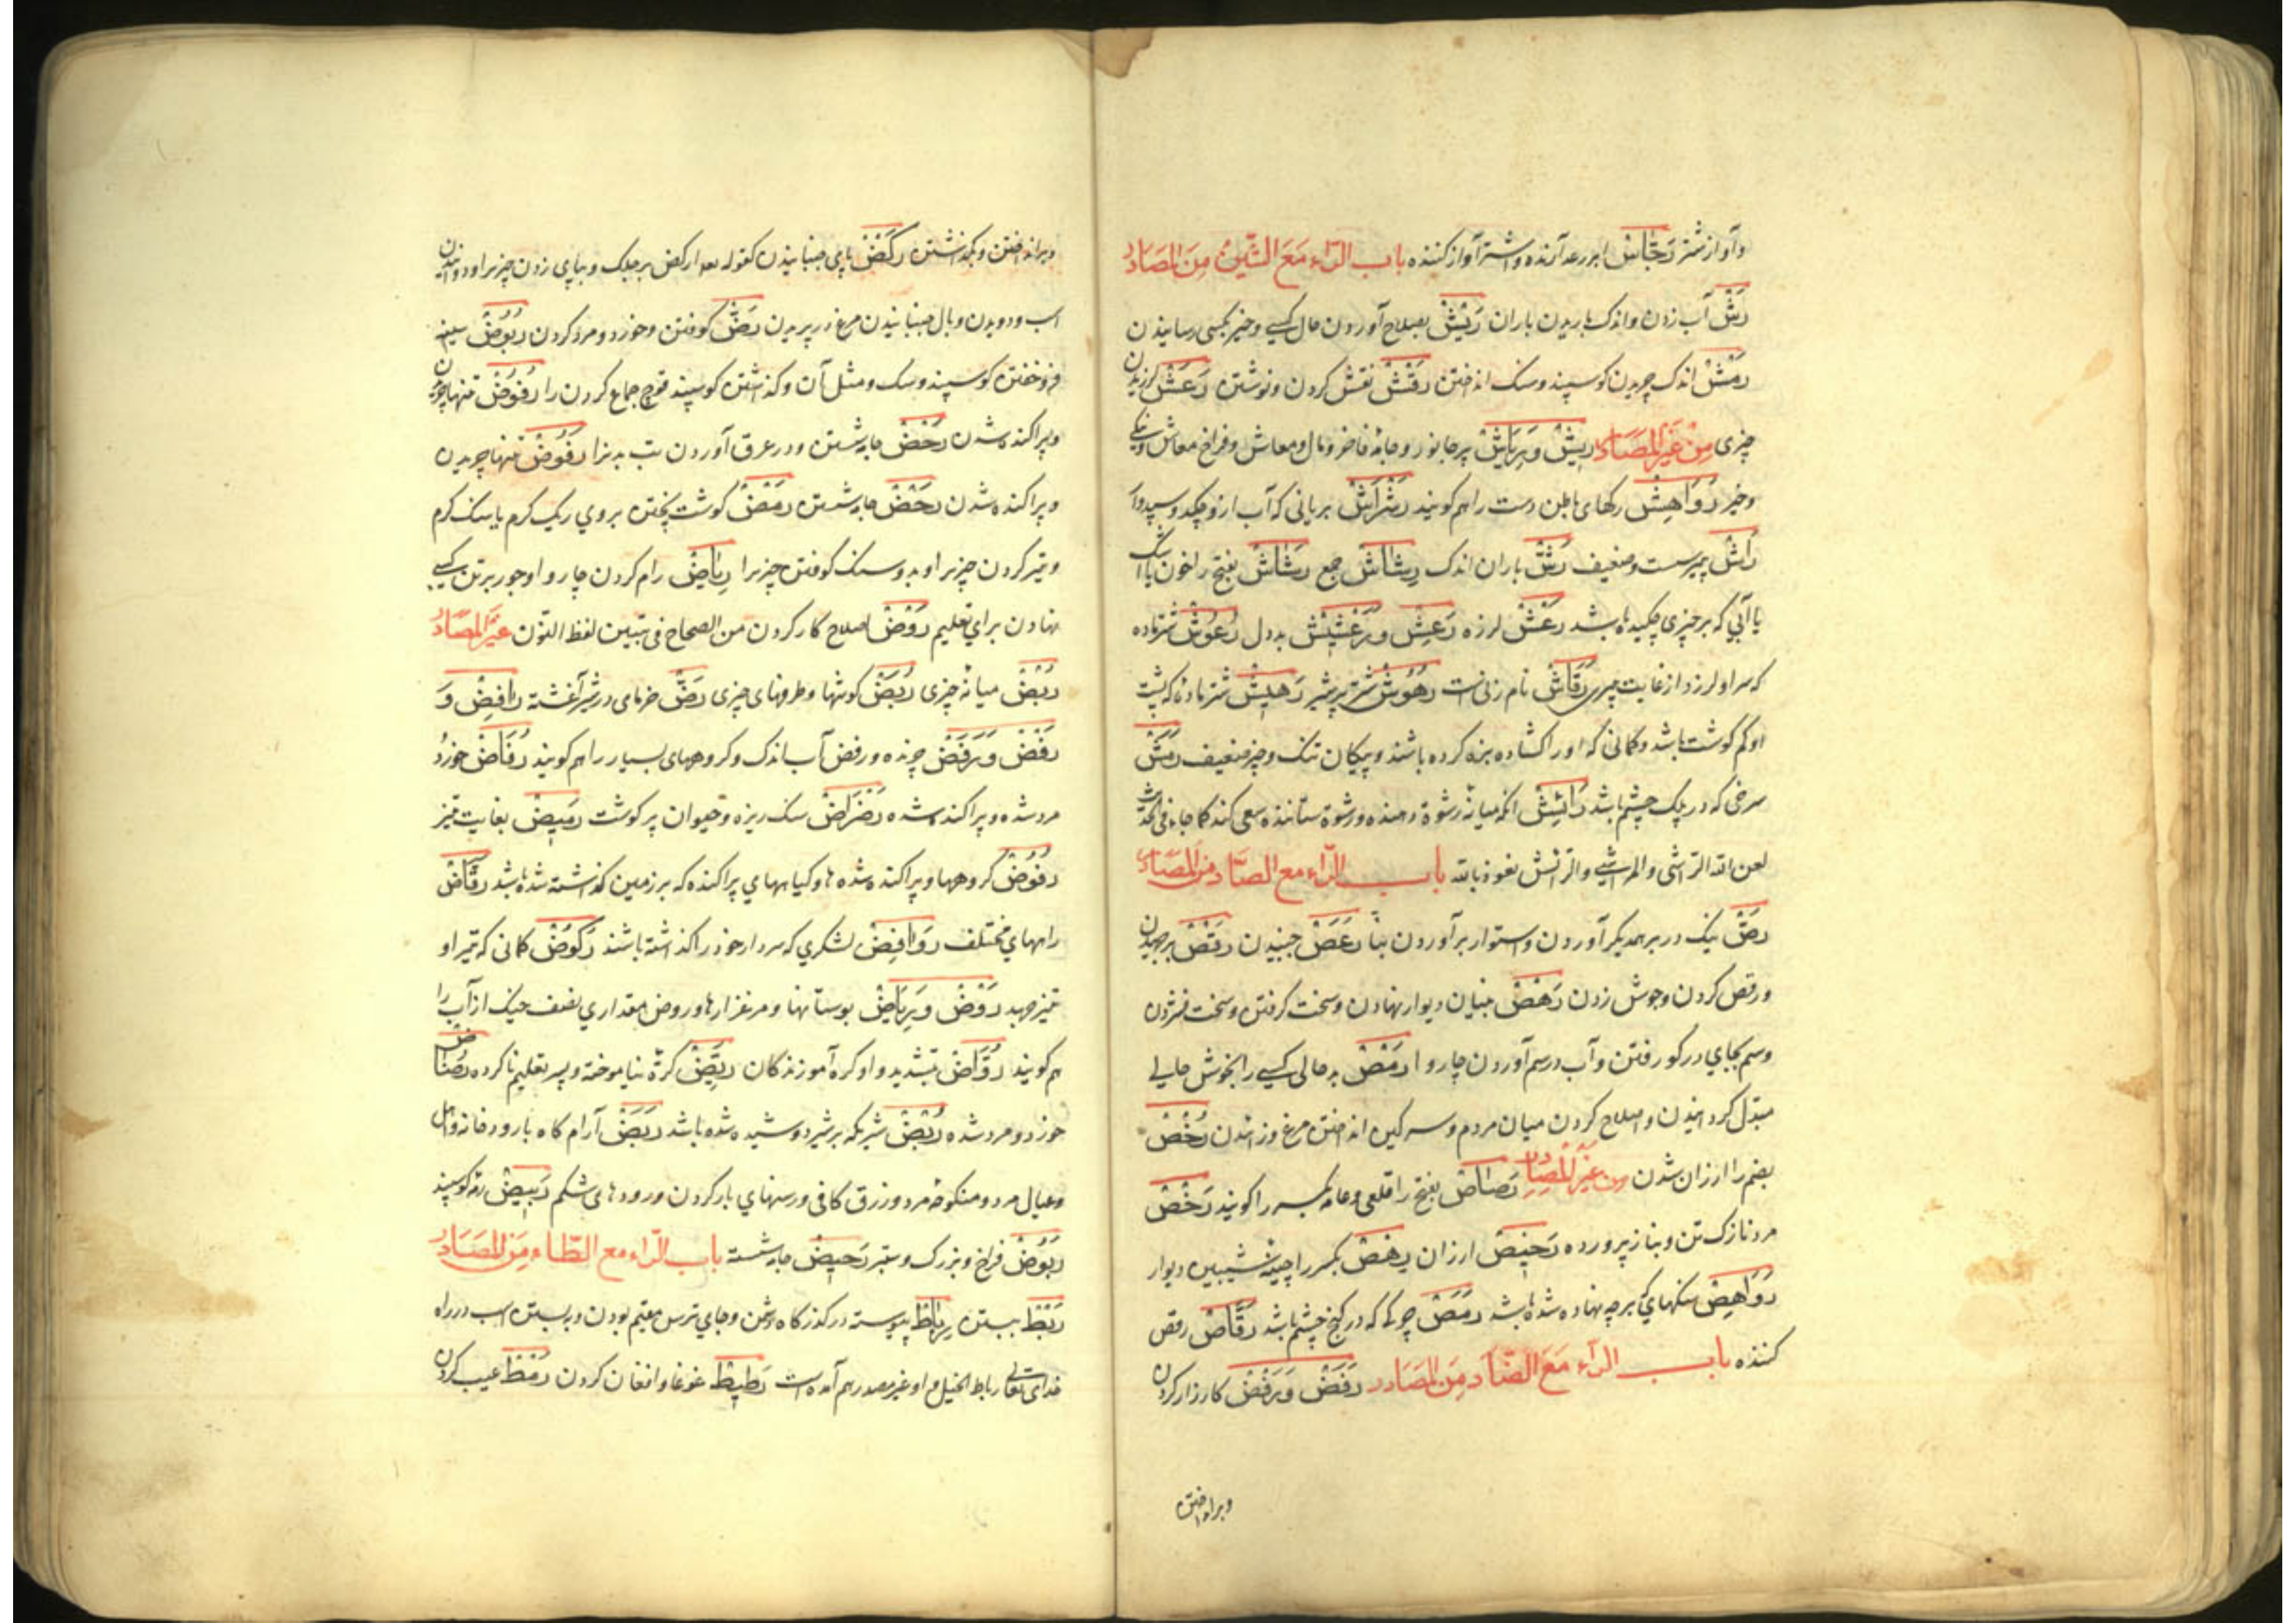 وآواز شتر رَجَّاسْ ابر رعد آرنده و اشتر آواز کننده باب الرّاء مَعَ الشّین مِنَ المصَادر
رَشّ آب زدن و اندک باریدن باران رَیْش بصلاح آوردن حال کسی و خیر بکسی رسانیدن
رَمْش اندک چریدن کوسپند و سنک انداختن رَقْش نقش کردن و نوشتن رَعَش لرزیدن
چیزی مِنْ غَیْرِ المصَادر رِیْش وَ رِیَاش پر جانور و جامۀ فاخر و مال و معاش و فراخ معاش و نیکی
و خیر رَوَاهِش رکهای باطن دست را هم کویند رَشْرَاش بریانی که آب ازو چکد و
رَاش سست و ضعیف رَشّ باران اندک رِشَاش جمع رَشَاش بفتح را خون یا اشک
یا آبی که بر چیزی چکیده باشد رَعَش لرزه رَعِش وَ رِعْشِیش بددل رَعُوش شتر ماده
که سر او لرزد از غایت پیری رَقَاش نام زنی است رَهُوش شتر پرشیر رَهِیش شتر ماده که پشت
او کم کوشت باشد و کمانی که او را کشاده بزه کرده باشند و پیکان تنک و چیز ضعیف رَمَش
سرخی که در پلک چشم باشد رَائِش آنکه میانۀ رشوة دهنده و رشوة ستاننده سعی کند کما جاء فی الحدیث
لعن الله الراشی والمرتشی والرائش نعوذ بالله باب الرّاء مع الصّاد مِنَ المصَادر
رَصّ نیک در بر همدیکر آوردن و استوار بر آوردن بنا رَعَص جنبیدن رَقْص برجهیدن
و رقص کردن و جوش زدن رَهْص بنیان دیوار نهادن و سخت کرفتن و سخت فشردن
و سم بجای در کو رفتن و آب در سم آوردن چاروا رَمْص بدحالی کسی را بخوش حالی
مبدّل کردانیدن و اصلاح کردن میان مردم و سرکین انداختن مرغ و زاشدن رُخْص
بضم را ارزان شدن مِن غَیْرِ المصَادر رَصَاص بفتح را قلعی و عامه بکسر را کویند رَخْص
مرد نازک تن و بناز پرورده رَخِیص ارزان رِهْص بکسر را چینۀ شیبین دیوار
رَوَاهِص سنکهای که بر چه نهاده شده باشد رَمَص چرکی که در کنج چشم باشد رَقَّاص رقص
کننده باب الرّاء مَعَ الضّاد مِنَ المصَادر رَفَض وَ رَفْض کارزار کردن
وبرانداختن
وبرانداختن و بکذاشتن رَکْض بپای جنبانیدن کقوله ارکض برجلک و بپای زدن چیزیرا و دوانیدن
اسب و دویدن و بال جنبانیدن مرغ در پریدن رَضّ کوفتن و خورد و مرد کردن رُبُوض سینه
فروخفتن کوسپند و سک و مثل آن و کذاشتن کوسپند قوچ جماع کردن را رُفُوض تنها چریدن
و پراکنده شدن رَحْض جامه شستن و در عرق آوردن تب بدنرا رُفُوض تنها چریدن
و پراکنده شدن رَحْض جامه شستن رَمْض کوشت پختن بر وی ریک کرم یا سنک کرم
و تیز کردن چیزیرا و بدو سنک کوفتن چیزیرا رِیَاض رام کردن چاروا و جور برتن کسی
نهادن برای تعلیم رَوْض اصلاح کار کردن من الصحاح فی تبیین لفظ غَیْر المصَادر
رُبْض میانۀ چیزی رَبَض کوشها و طرفهای چیزی رَضّ خرمای در شیر آغشته رَافِض وَ
رَفْض وَ رَفَض چرنده و رفض آب اندک و کروههای بسیار را هم کویند رُفَاض خورد
مرد شده و پراکنده شده رَضْرَاض سنک ریزه و حیوان پر کوشت رَمِیض بغایت تیز
رُفُوض کروهها و پراکنده شده ها و کیاههای پراکنده که بر زمین کذاشته شده باشد رِفَاض
راههای مختلف رَوَافِض لشکری که سردار خود را کذاشته باشند رَکُوض کمانی که تیر او
تیز جهد رَوْض وَ رِیَاض بوستانها و مرغزارها و روض مقداری نصف خیک از آب را
هم کویند رُوَّاض بتشدید واو کره آموزندکان رَیِّض کرۀ نیاموخته و پسر تعلیم ناکرده رُضَاض
خورد و مرد شده رَبَض شتر دوشیده شده باشد رَبَض آرامکاه
و عیال مرد و منکوحۀ مرد و رزق کافی و رسنهای بار کردن و رودهای شکم رَبِیض رمۀ کوسپند
رَبُوض فراخ و بزرک و ستبر رَحِیض جامه شسته باب الرّاء مع الطّاء مِنَ المصَادر
رَبْط ببستن رِبَاط پیوسته در کذرکاه دشمن و جای ترس مقیم بودن و بستن اسب در راه
خدای تعالی رباط الخیل و او غیر مصدر هم آمده است رَطِیط غوغا و افغان کردن رَمْط عیب کردن